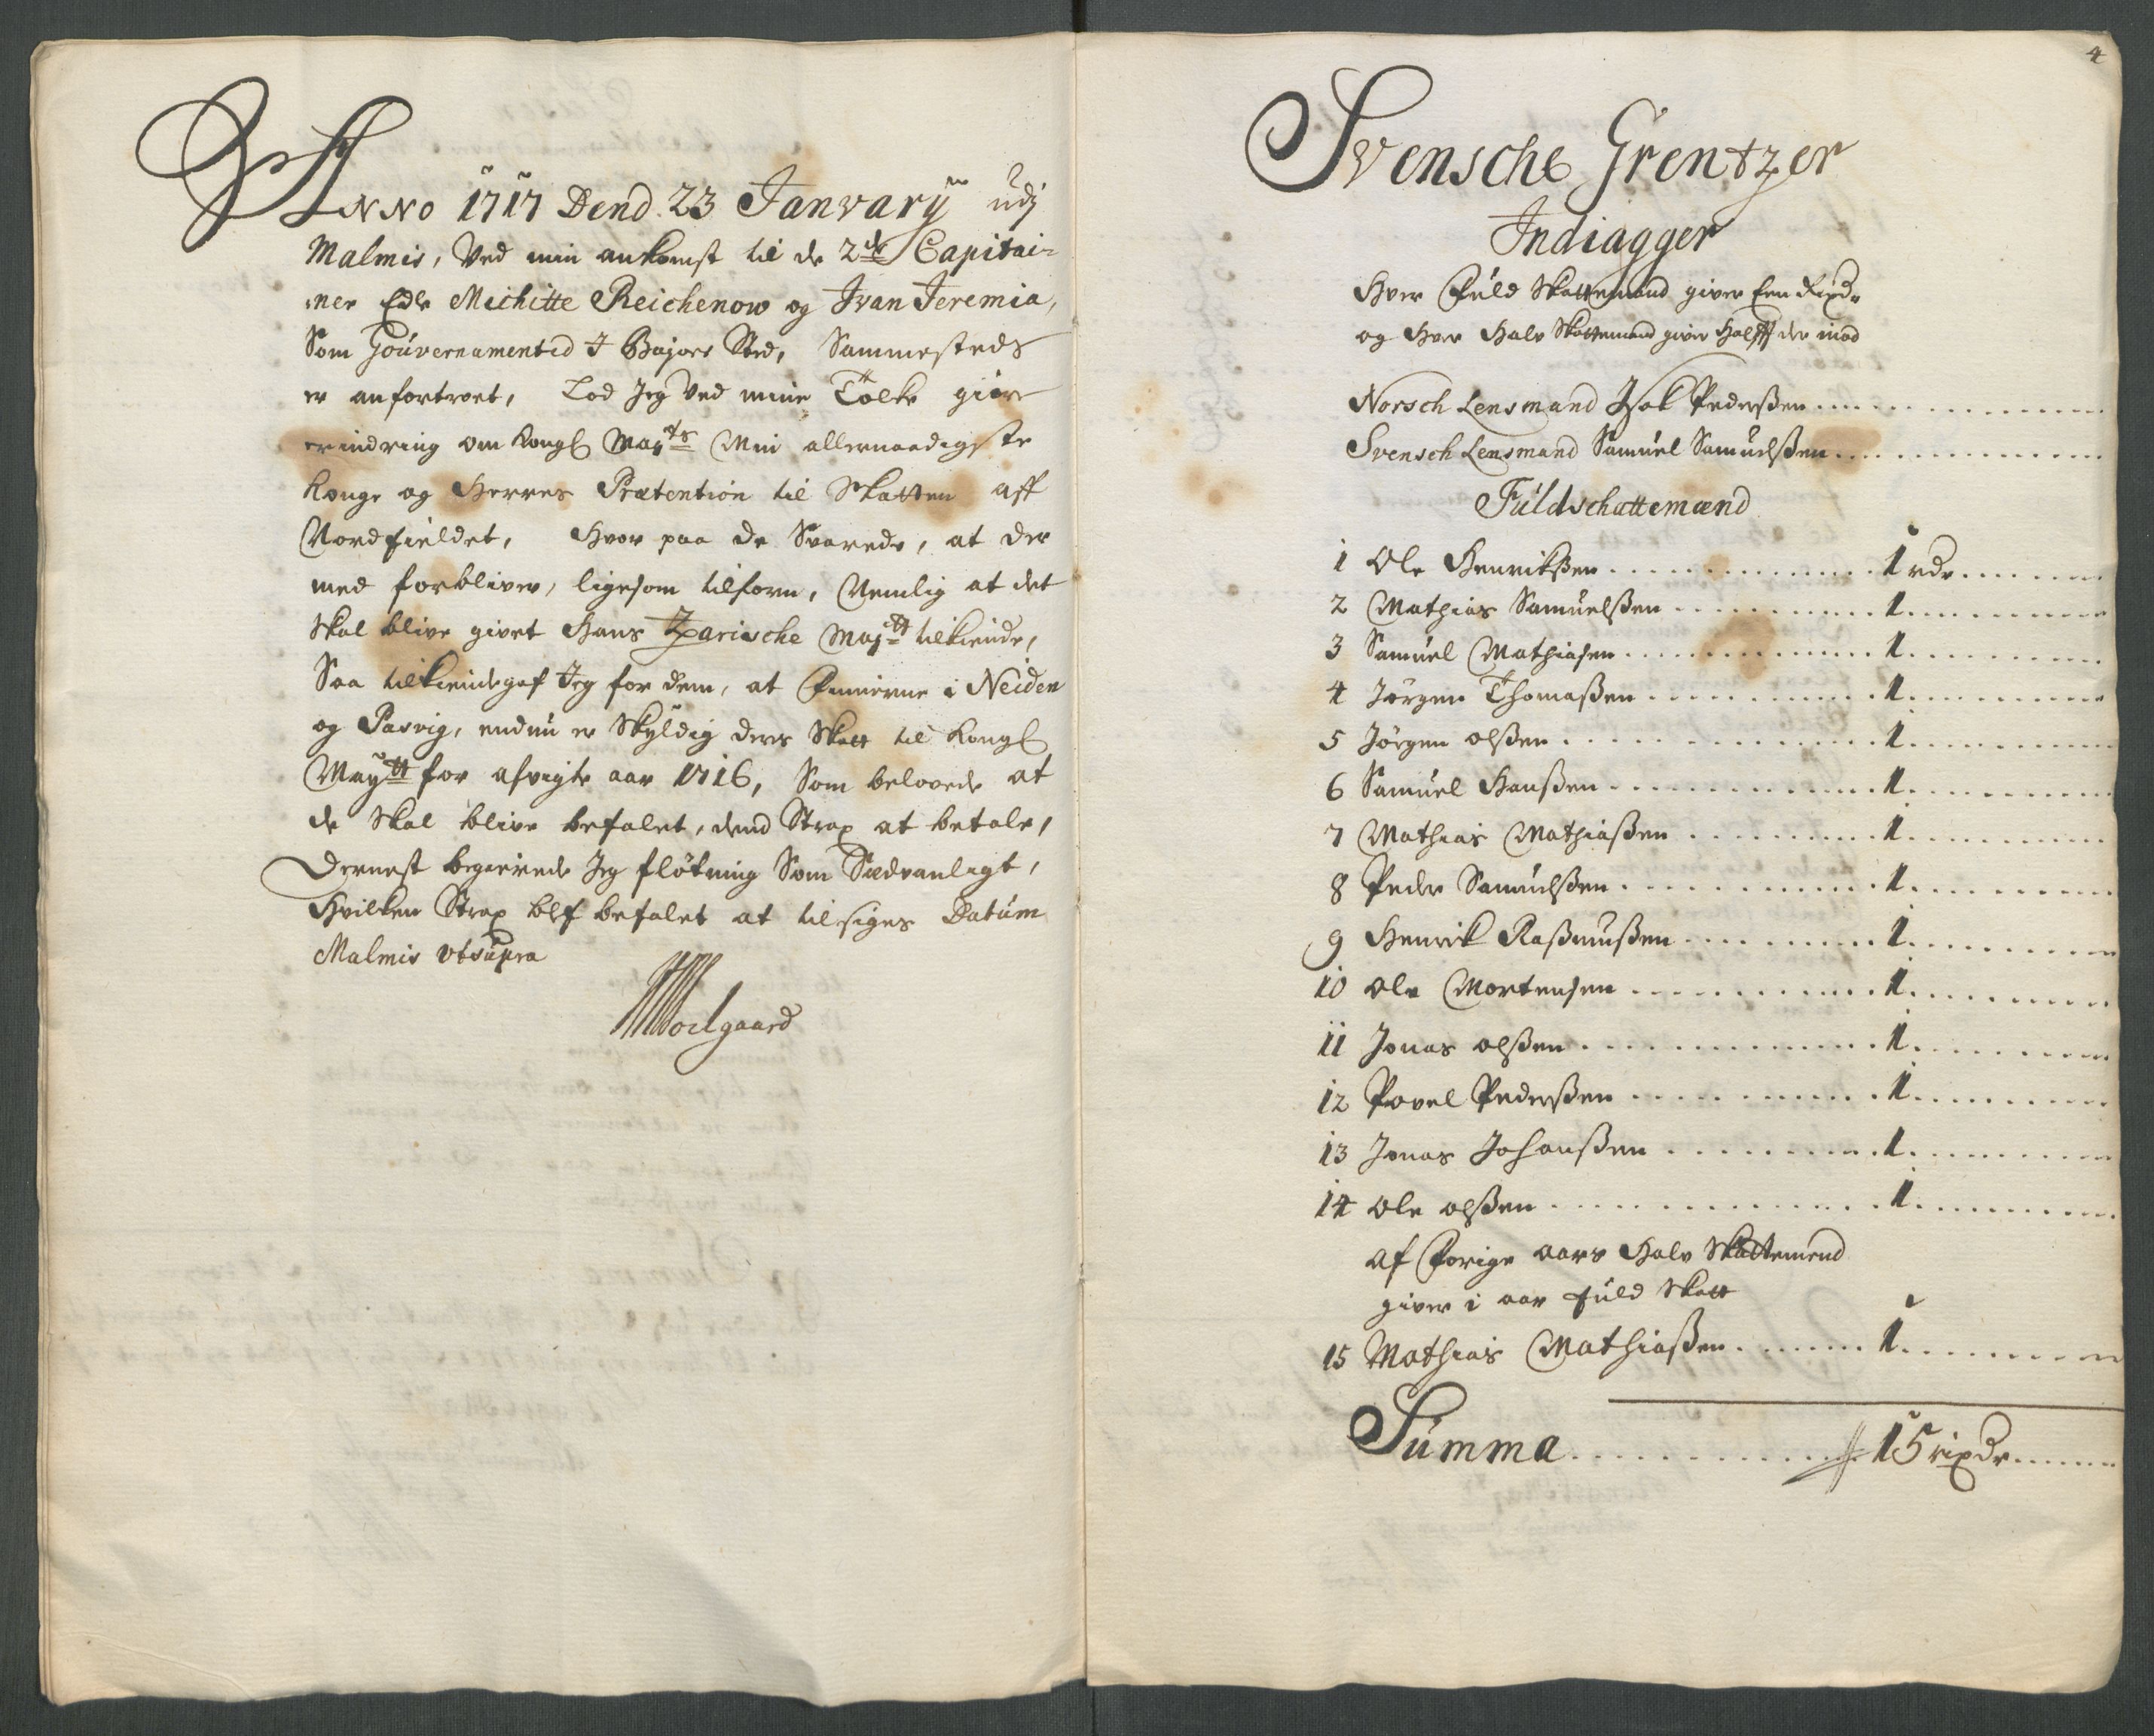 Anno 1717 Dend 23 Janvary udj
Malmis, Ved min ankomst til de 2de Capitai-
ner Edle Michitte Reichenow og Ivan Jeremia,
Som Gouvernamentid I Bajors Sted, Sammesteds
er anfortroet, Lod Jeg Ved mine Tolke giøre
erindring om Kongl Mayts Min allernaadigste
Konge og Herres Prætention til Skatten aff
Nordfieldet, Hvor paa de Svarede, at der
med forbliver, ligesom tilforn, Nemlig at det
skal blive givet Hans Tzarische Majtt tilkiende,
Saa tilkiendegaf Jeg for dem, at Finnerne i Neiden
og Pasvig, endnu er Skyldig deres Skatt til Kongl
Maytt for afvigte aar 1716, Som belovede at
de Skal blive befalet, dend Strax at betale,
Dernest begierede Jeg fløtning Som Sædvanligt,
Hvilken Strax blef befalet at tilsiges Datum
Malmis utsupra
Moelgaard
4
Svensche Grentzer
Indiagger
Hver Fuld Skattemand giver Een Rixdr
og Hver Halv Skattemand giver Halfft der imod
Norsch Lensmand Isak Pederßen
Svensch Lensmand Samuel Samuelßen
Fuldschattemænd
1 Ole Henrikßen 1 rdr
2 Mathias Samuelßen 1
3 Samuel Mathiasen 1
4 Jørgen Thomaßen 1
5 Jørgen olßen 1
6 Samuel Hanßen 1
7 Mathias Mathiaßen 1
8 Peder Samuelßen 1
9 Henrik Raßmußen 1
10 Ole Mortensen 1
11 Jonas olßen 1
12 Povel Pederßen 1
13 Jonas Johanßen 1
14 Ole olßen 1
af Forige aars Halv Skattemend
giver i aar fuld Skatt
15 Mathias Mathiaßen 1
Summa 15 rixdr